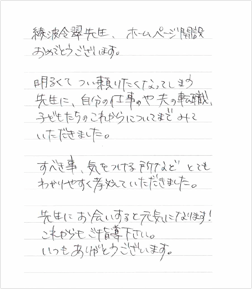 綾波令翠先生、ホームページ開設
おめでとうございます。
明るくて つい頼りたくなってしまう
先生に、自分の仕事や夫の転職、
子どもたちのこれからについてまで みて
いただきました。
すべき事、気をつける所など とても
わかりやすく教えていただきました。
先生にお会いすると元気になります!
これからもご指導下さい。
いつもありがとうございます。